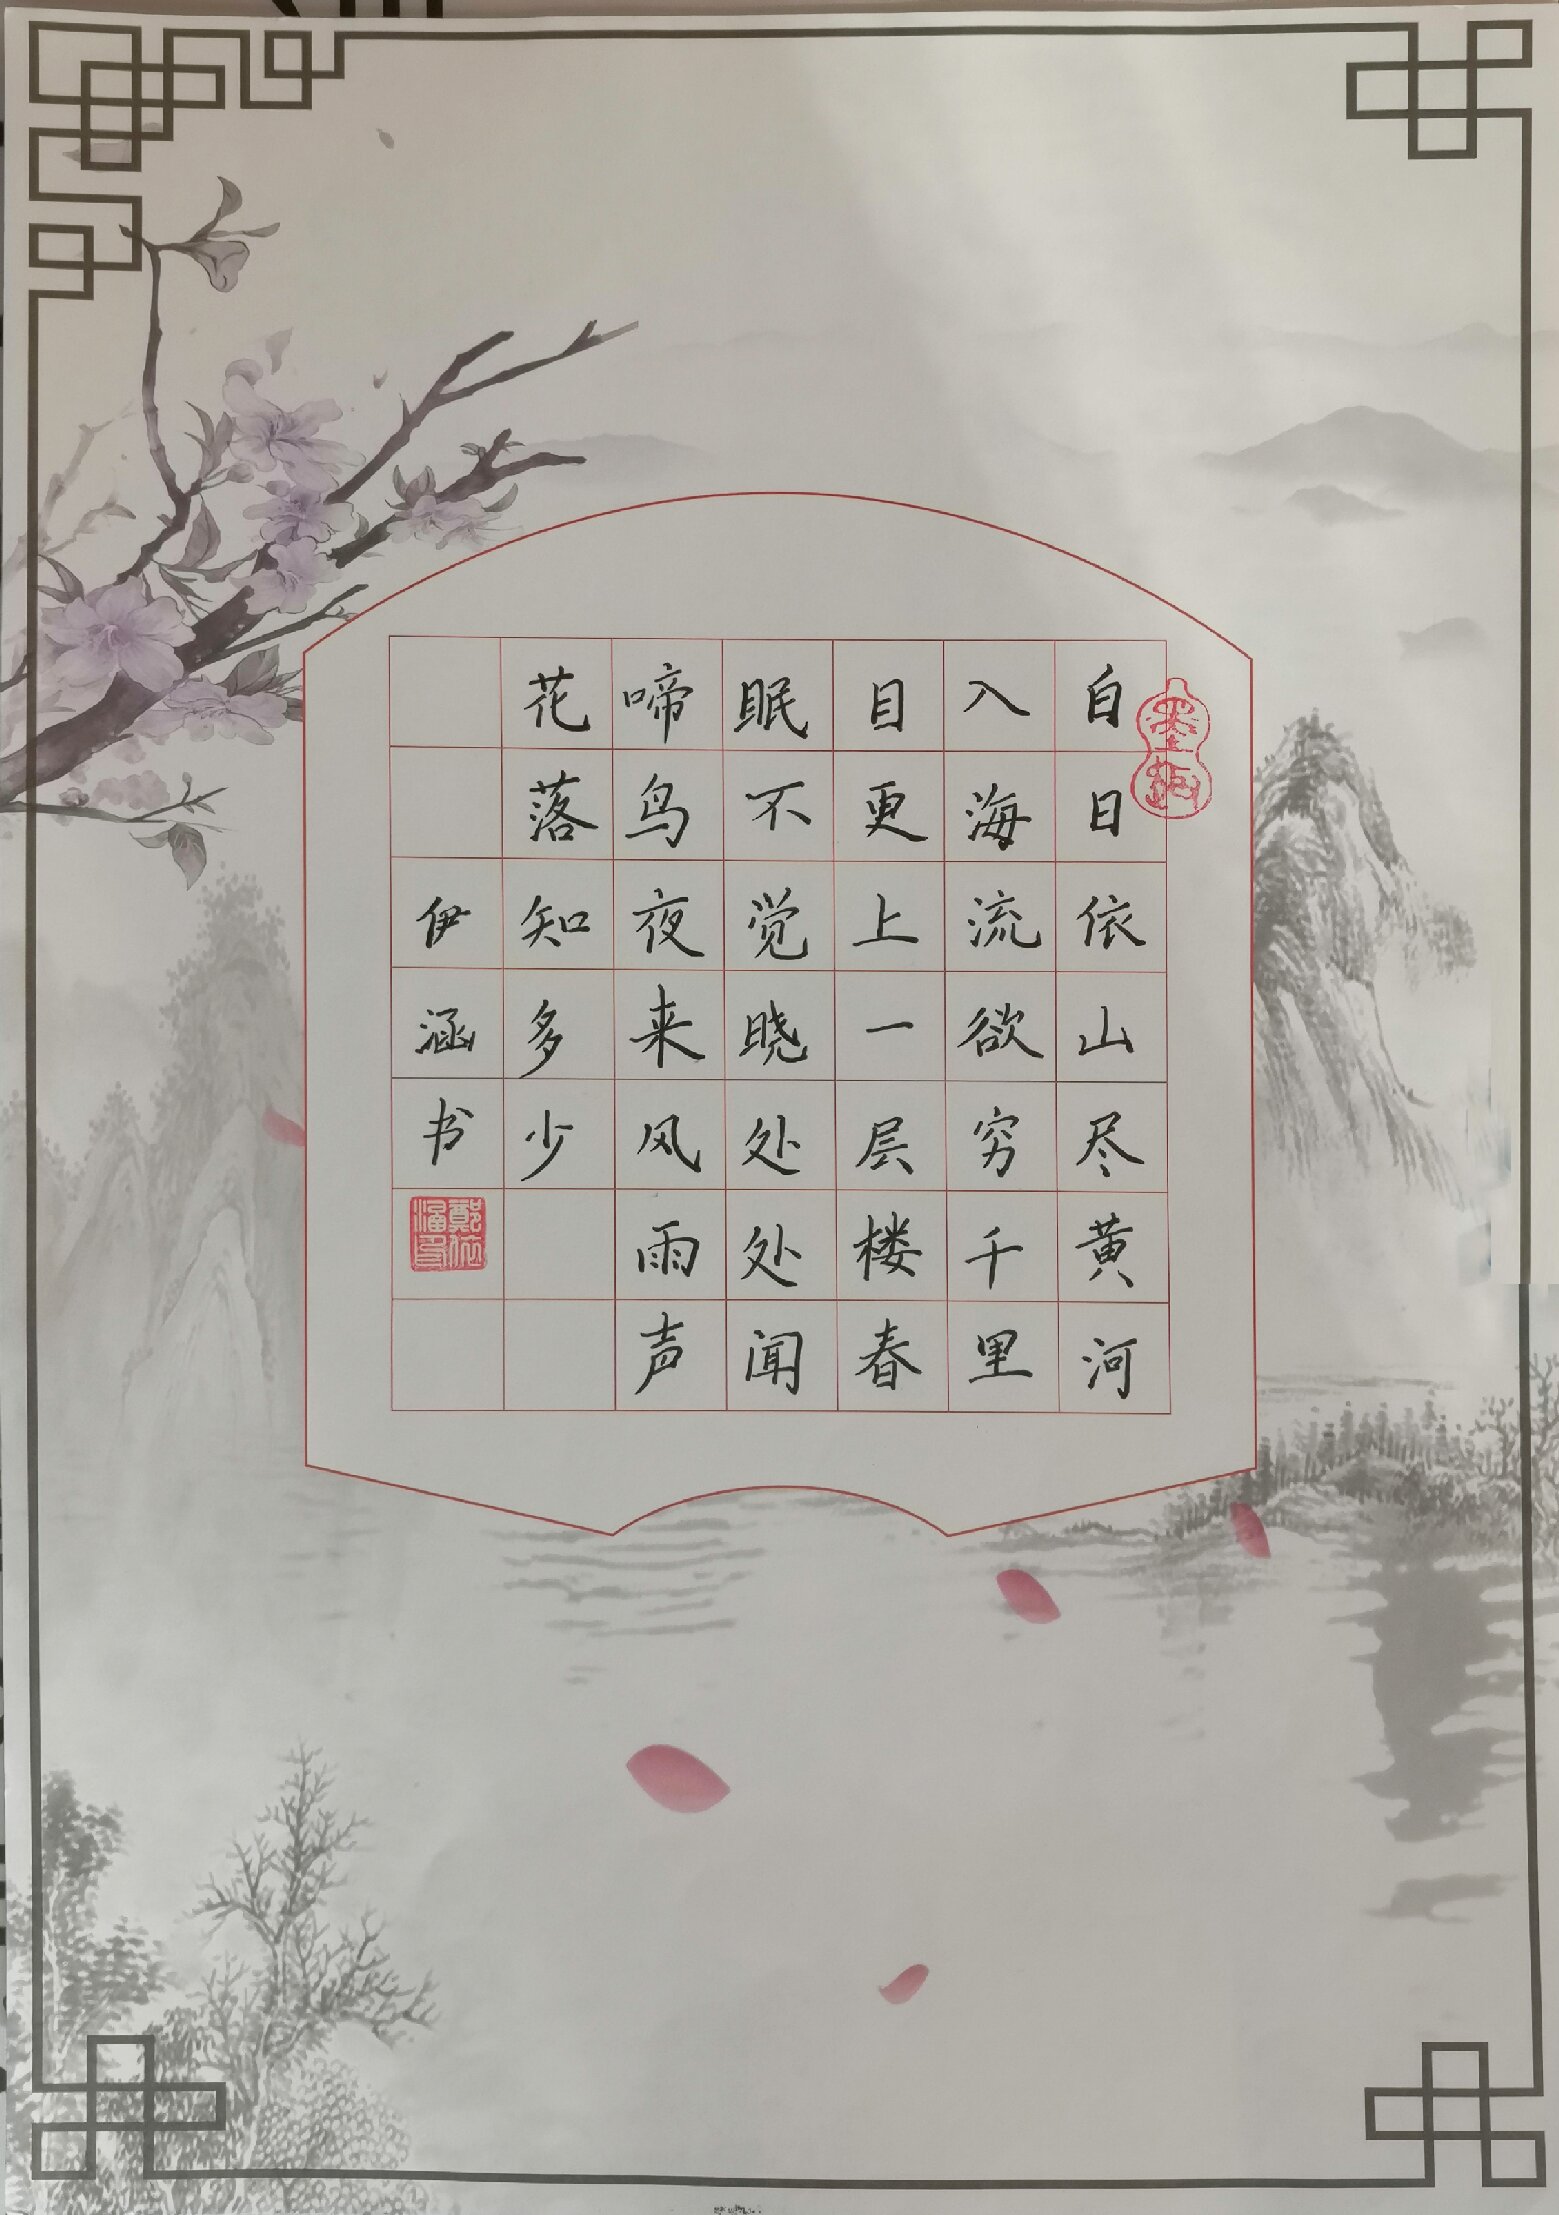 自日依山尽黄河
入海流欲穷千里
目更上一层楼春
眠不觉晓处处闻
啼鸟夜来风雨声
花落知多少
伊涵书